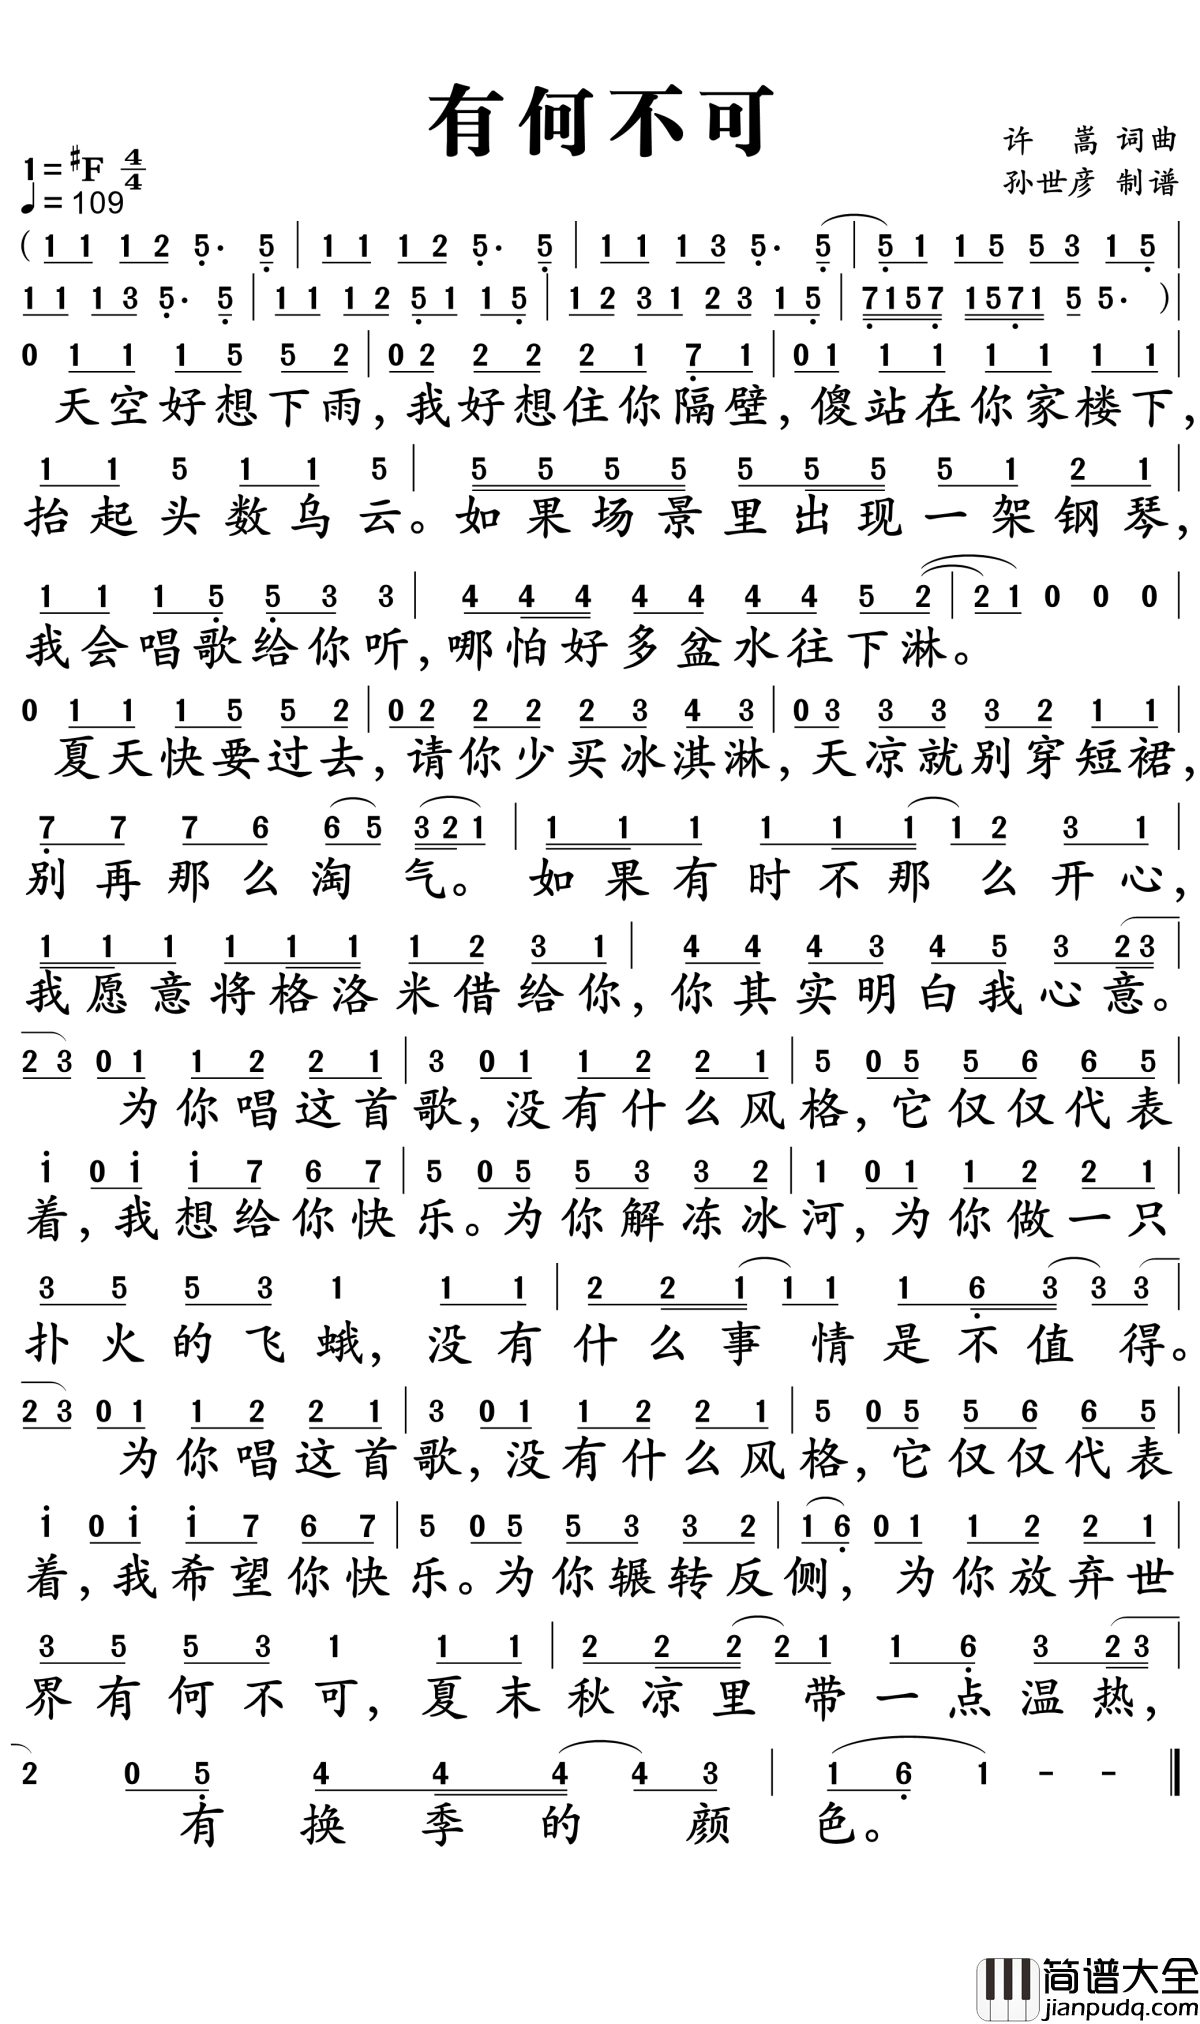 有何不可
许 嵩 词曲
孙世彦 制谱
1=♯F 4/4
♩=109
( 1 1 1 2 5· 5 | 1 1 1 2 5· 5 | 1 1 1 3 5· 5 | 5 1 1 5 5 3 1 5 |
1 1 1 3 5· 5 | 1 1 1 2 5 1 1 5 | 1 2 3 1 2 3 1 5 | 7 1 5 7 1 5 7 1 5 5· ) |
0 1 1 1 5 5 2 | 0 2 2 2 2 1 7 1 | 0 1 1 1 1 1 1 1 |
天空好想下雨,我好想住你隔壁,傻站在你家楼下,
1 1 5 1 1 5 | 5 5 5 5 5 5 5 5 1 2 1 |
抬起头数乌云。如果场景里出现一架钢琴,
1 1 1 5 5 3 3 | 4 4 4 4 4 4 4 5 2 | 2 1 0 0 0 |
我会唱歌给你听,哪怕好多盆水往下淋。
0 1 1 1 5 5 2 | 0 2 2 2 2 3 4 3 | 0 3 3 3 3 2 1 1 |
夏天快要过去,请你少买冰淇淋,天凉就别穿短裙,
7 7 7 6 6 5 3 2 1 | 1 1 1 1 1 1 1 2 3 1 |
别再那么淘气。如果有时不那么开心,
1 1 1 1 1 1 1 2 3 1 | 4 4 4 3 4 5 3 2 3 |
我愿意将格洛米借给你,你其实明白我心意。
2 3 0 1 1 2 2 1 | 3 0 1 1 2 2 1 | 5 0 5 5 6 6 5 |
为你唱这首歌,没有什么风格,它仅仅代表
i 0 i i 7 6 7 | 5 0 5 5 3 3 2 | 1 0 1 1 2 2 1 |
着,我想给你快乐。为你解冻冰河,为你做一只
3 5 5 3 1 1 1 | 2 2 1 1 1 1 6 3 3 3 |
扑火的飞蛾,没有什么事情是不值得。
2 3 0 1 1 2 2 1 | 3 0 1 1 2 2 1 | 5 0 5 5 6 6 5 |
为你唱这首歌,没有什么风格,它仅仅代表
i 0 i i 7 6 7 | 5 0 5 5 3 3 2 | 1 6 0 1 1 2 2 1 |
着,我希望你快乐。为你辗转反侧,为你放弃世
3 5 5 3 1 1 1 | 2 2 2 2 1 1 6 3 2 3 |
界有何不可,夏末秋凉里带一点温热,
2 0 5 4 4 4 4 3 | 1 6 1 - - ‖
有换季的颜色。
简谱大全
jianpudq.com